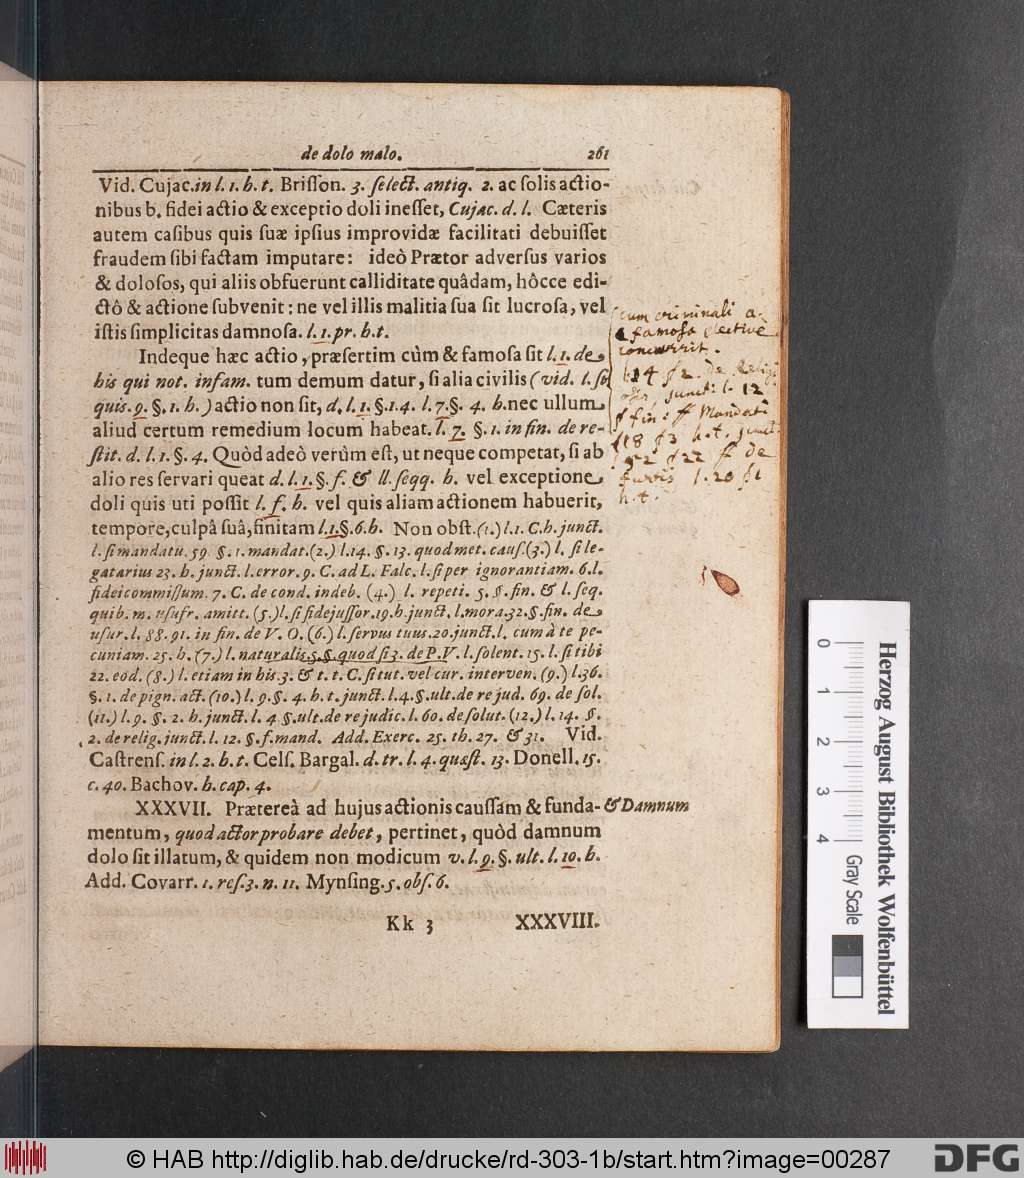 de dolo malo. 261
Vid. Cujac. in l. 1. h. t. Briſſon. 3. ſelect. antiq. 2. ac ſolis actio-
nibus b. fidei actio & exceptio doli ineſſet, Cujac. d. l. Cæteris
autem caſibus quis ſuæ ipſius improvidæ facilitati debuiſſet
fraudem ſibi factam imputare: ideò Prætor adverſus varios
& doloſos, qui aliis obfuerunt calliditate quâdam, hôcce edi-
ctô & actione ſubvenit: ne vel illis malitia ſua ſit lucroſa, vel
iſtis ſimplicitas damnoſa. l. 1. pr. h. t.
Indeque hæc actio, præſertim cùm & famoſa ſit l. 1. de
his qui not. infam. tum demum datur, ſi alia civilis (vid. l. ſi
quis. 9. §. 1. h.) actio non ſit, d. l. 1. §. 1. 4. l. 7. §. 4. h. nec ullum
aliud certum remedium locum habeat. l. 7. §. 1. in fin. de re-
ſtit. d. l. 1. §. 4. Quòd adeò verùm eſt, ut neque competat, ſi ab
alio res ſervari queat d. l. 1. §. f. & ll. ſeqq. h. vel exceptione
doli quis uti poſſit l. f. h. vel quis aliam actionem habuerit,
tempore, culpâ ſuâ, finitam l. 1. §. 6. h. Non obſt. (1.) l. 1. C. h. junct.
l. ſi mandatu. 59. §. 1. mandat. (2.) l. 14. §. 13. quod met. cauſ. (3.) l. ſi le-
gatarius 23. h. junct. l. error. 9. C. ad L. Falc. l. ſi per ignorantiam. 6. l.
fideicommiſſum. 7. C. de cond. indeb. (4.) l. repeti. 5. §. fin. & l. ſeq.
quib. m. uſufr. amitt. (5.) l. ſi fidejuſſor. 19. h. junct. l. mora. 32. §. fin. de
uſur. l. 88. 91. in fin. de V. O. (6.) l. ſervus tuus. 20. junct. l. cum à te pe-
cuniam. 25. h. (7.) l. naturalis. 5. §. quod ſi 3. de P. V. l. ſolent. 15. l. ſi tibi
22. eod. (8.) l. etiam in his. 3. & t. t. C. ſi tut. vel cur. interven. (9.) l. 36.
§. 1. de pign. act. (10.) l. 9. §. 4. h. t. junct. l. 4. §. ult. de re jud. 69. de ſol.
(11.) l. 9. §. 2. h. junct. l. 4 §. ult. de re judic. l. 60. de ſolut. (12.) l. 14. §.
2. de relig. junct. l. 12. §. f. mand. Add. Exerc. 25. th. 27. & 31. Vid.
Caſtrenſ. in l. 2. h. t. Celſ. Bargal. d. tr. l. 4. quæſt. 13. Donell. 15.
c. 40. Bachov. h. cap. 4.
XXXVII. Prætereà ad hujus actionis cauſſam & funda-
mentum, quod actor probare debet, pertinet, quòd damnum
dolo ſit illatum, & quidem non modicum v. l. 9. §. ult. l. 10. h.
Add. Covarr. 1. reſ. 3. n. 11. Mynſing. 5. obſ. 6.
Kk 3 XXXVIII.
& Damnum
cum criminali a.
famosa elective
concurrit.
l. 14 § 2 de Religi
junct: l. 12
§ fin: ff Mandati
l 18 § 3 h. t. junct.
l. 52 § 22 ff de
furtis l. 20 § 1
h. t.
0 1 2 3 4
Gray Scale
Herzog August Bibliothek Wolfenbüttel
© HAB http://diglib.hab.de/drucke/rd-303-1b/start.htm?image=00287
DFG